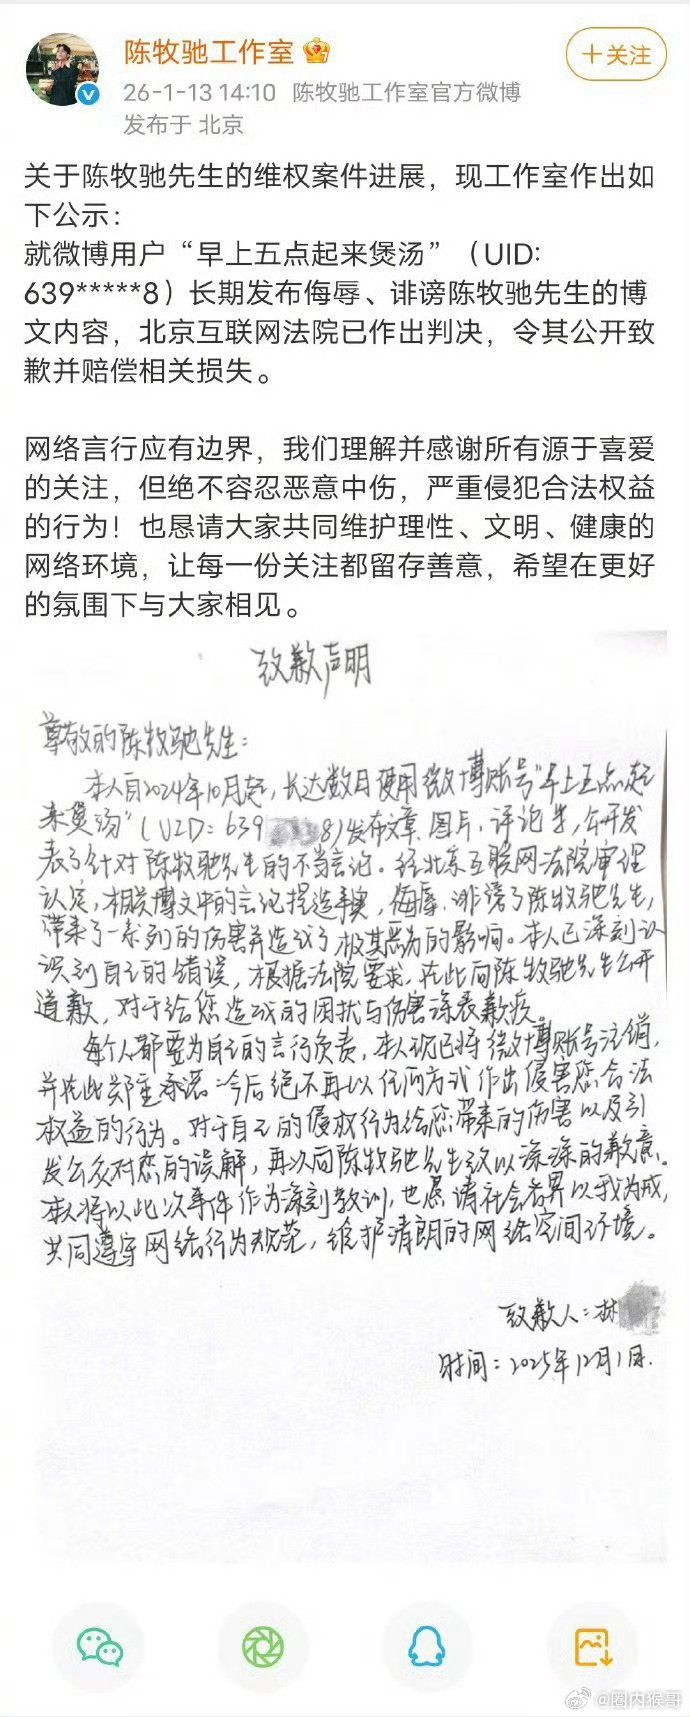 陈牧驰工作室
+关注
26-1-13 14:10 陈牧驰工作室官方微博
发布于 北京
关于陈牧驰先生的维权案件进展，现工作室作出如
下公示：
就微博用户“早上五点起来煲汤”（UID:
639*****8）长期发布侮辱、诽谤陈牧驰先生的博
文内容，北京互联网法院已作出判决，令其公开致
歉并赔偿相关损失。
网络言行应有边界，我们理解并感谢所有源于喜爱
的关注，但绝不容忍恶意中伤，严重侵犯合法权益
的行为！也恳请大家共同维护理性、文明、健康的
网络环境，让每一份关注都留存善意，希望在更好
的氛围下与大家相见。
致歉声明
尊敬的陈牧驰先生：
本人自2024年10月起，长达数日使用微博账号“早上五点起
来煲汤”（UID：639 8）发布文章、图片、评论等，公开发
表了针对陈牧驰先生的不当言论。经北京互联网法院审理
认定，相关博文中的言论捏造事实，侮辱、诽谤了陈牧驰先生，
带来了一系列的伤害并造成了极其恶劣的影响。本人已深刻认
识到自己的错误，根据法院要求，在此向陈牧驰先生公开
道歉，对于给您造成的困扰与伤害深表歉疚。
每个人都要为自己的言行负责，本人现已将微博账号注销，
并在此郑重承诺：今后绝不再以任何方式作出侵害您合法
权益的行为。对于自己的侵权行为给您带来的伤害以及引
发公众对您的误解，再次向陈牧驰先生致以深深的歉意。
本人将以此次事件作为深刻教训，也恳请社会各界以我为戒，
共同遵守网络行为规范，维护清朗的网络空间环境。
致歉人：林
时间：2025年12月1日.
@圈内猴哥